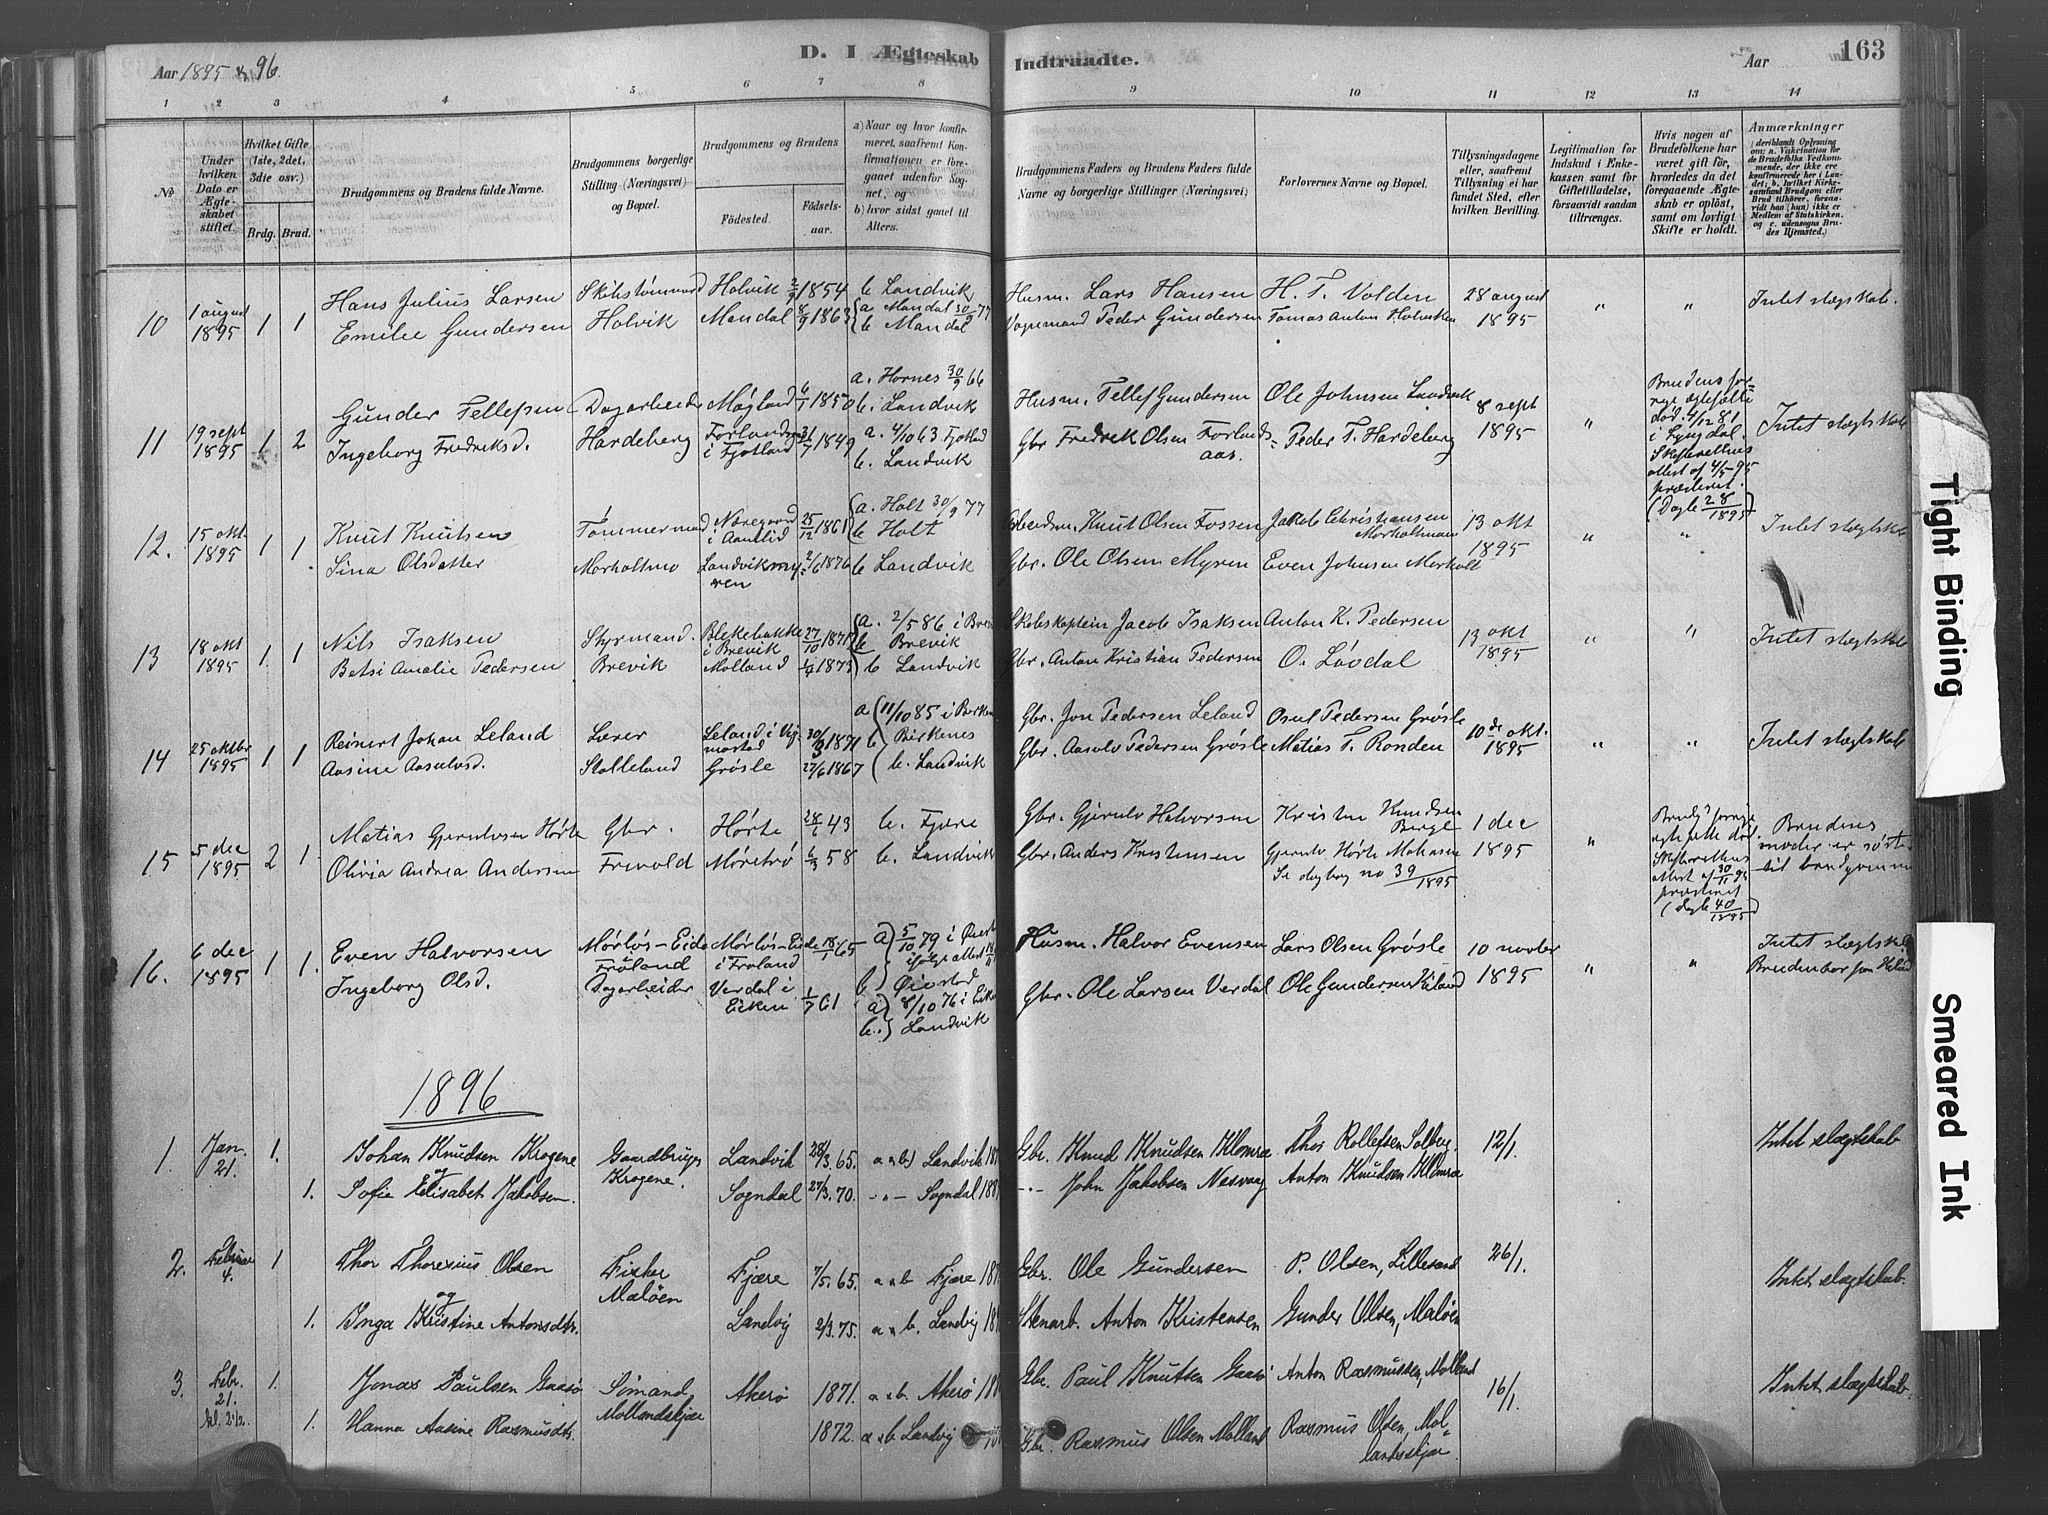 Aar 1895 & 96.
D. I Ægteskab
Indtraadte.
Aar
163
1 2 3 4 5 6 7 8 9 10 11 12 13 14
№
Under hvilken Dato er Ægteskabet stiftet.
Hvilket Gifte (1ste, 2det, 3die osv.)
Brdg. Brud.
Brudgommens og Brudens fulde Navne.
Brudgommens borgerlige Stilling (Næringsvei) og Bopæl.
Brudgommens og Brudens
Fødested.
Fødselsaar.
a) Naar og hvor konfirmeret, saafremt Konfirmationen er foregaaet udenfor Sognet, og
b) hvor sidst gaaet til Alters.
Brudgommens Faders og Brudens Faders fulde Navne og borgerlige Stillinger (Næringsvei)
Forlovernes Navne og Bopæl.
Tillysningsdagene eller, saafremt Tillysning ei har fundet Sted, efter hvilken Bevilling.
Legitimation for Indskud i Enkekassen samt for Giftetilladelse, forsaavidt saadan tiltrænges.
Hvis nogen af Brudefolkene har været gift før, hvorledes da det foregaaende Ægteskab er opløst, samt om lovligt Skifte er holdt.
Anmærkninger
(deriblandt Oplysning om: a. Vakcination for de Brudefolks Vedkommende, der ikke ere konfirmerede her i Landet; b. hvilket Kirkesamfund Brudgom eller Brud tilhører, forsaavidt han (hun) ikke er Medlem af Statskirken, og c. udensogns Brudes Hjemsted.)
10 1 august 1895 1 1
Hans Julius Larsen
Emilie Gundersen
Skibstømmermd
Holvik
Holvik 2/9 1854
Mandal 6/9 1863
b Landvik
a Mandal 30/9 77
b Mandal
Husm. Lars Hansen
Vognmand Peder Gundersen
H. T. Volden
Tomas Anton Holviken
28 august 1895
" "
Intet slægtskab.
11 19 sept 1895 1 2
Gunder Tellefsen
Ingeborg Fredriksd.
Dagarbeider
Hardeberg
Møgland 6/1 1850
Forlandsaas i Fjotland 31/7 1849
a. Hornes 30/9 66
b. Landvik
a. 4/10 63 Fjotland
b. Landvik
Husm. Tellef Gundersen
Gbr Fredrik Olsen Forlandsaas.
Ole Johnsen Landvik
Peder T. Hardeberg
8 sept 1895
"
Brudens forrige ægtefælle død 4/12 81 i Lyngdal. Skifterettens attest af 4/5 95 præsteret. (Dagb 28/1895)
Intet slægtskab
12. 15 okt 1895 1 1
Knut Knutsen
Sina Olsdatter
Tømmermand
Morholtmo
Næsgaard i Aamlid 25/12 1861
Landviksmyren 2/6 1876
a. Holt 30/9 77
b Holt
b Landvik
Arbeidsm. Knut Olsen Fossen
Gbr. Ole Olsen Myren
Jakob Christiansen Morholtmoen
Even Johnsen Morholt
13 okt 1895
" "
Intet slægtskab
13 18 okt 1895 1 1
Nils Isaksen
Betsi Amalie Pedersen
Styrmand.
Brevik
Blekebakke i Brevik 27/10 1871
Molland 1/4 1873
a. 2/5 86 i Brevik
b Brevik
b Landvik
Skibskaptein Jacob Isaksen
Gbr. Anton Kristian Pedersen
Anton K. Pedersen
O. Løvdal
13 okt 1895
" "
Intet slægtskab
14 25 oktbr 1895 1 1
Reinert Johan Leland
Aasine Aasulvsd.
Lærer
Stolleland
Leland i Vegmostad 30/3 1871
Grøsle 27/6 1867
a 11/10 85 i Birkenes
b Birkenes
b. Landvik
Gbr. Jon Pedersen Leland
Gbr. Aasulv Pedersen Grøsle
Osul Pedersen Grøsle
Matias T. Ronden
10de okt. 1895
" "
Intet slægtskab
15 5 dec 1895 2 1
Matias Gjerulvsen Hørte
Olivia Andrea Andersen
Gbr.
Frivold
Hørte 28/1 43
Møretrø 1/3 58
b. Fjære
b. Landvik
Gbr. Gjerulv Halvorsen
Gbr. Anders Kristensen
Kristen Knudsen Berge
Gjerulv Hørte Mathiasen
Se dagbog no 39/1895
1 dec 1895
"
Brudg forrige egtefælle død. Skifterettens attest af 30/11 95 præsteret (dagb 40/1895)
Brudens moder er søster til brudgommen
16. 6 dec 1895 1 1.
Even Halvorsen
Ingeborg Olsd.
Mørløs-Eide
Frøland
Dagarbeider
Mørløs-Eide i Froland 18/1 65
Verdal i Eiken 1/7 61
a) 5/10 79 i Øiestad ifølge attest
b) Øiestad
a) 8/10 76 i Eiken
b.) Landvik
Husm. Halvor Evensen
Gbr. Ole Larsen Verdal
Lars Olsen Grøsle
Ole Gundersen Kiland
10 novbr 1895
" "
Intet slægtskab
Bruden bor paa Kiland
1896
1. Jan. 21. 1.
Johan Knudsen Krogene
og
1. Sofie Elisabet Jakobsen.
Gaardbruger
Krogene.
Landvik 28/3. 65.
Sogndal 27/3. 70.
a & b) Landvik
-"- Sogndal
Gbr. Knud Knudsen Klomra
-"- John Jakobsen Nesvaag
Thor Rollefsen Solberg.
Anton Knudsen Klomra
12/1.
Intet slægtskab
2. Februar 4. 1
Thor Thorenius Olsen
og
1. Inga Kristine Antonsdtr.
Fisker
Maløen
Fjære 7/5. 65.
Landvig 2/3. 75.
a & b Fjære
a & b. Landvig
Gbr. Ole Gundersen
Stenarb. Anton Kristensen
P. Olsen, Lillesand
Gunder Olsen, Maløen
26/1.
Intet slægtskab.
3. Febr. 21. 1.
Jonas Paulsen Gaasø
1. Hanna Aasine Rasmusdtr.
Sømand
Mollandskjær
Akerø 1871.
1872.
a & b. Akerø
a & b Landvig
Gbr. Paul Knutsen Gaasø
Gbr. Rasmus Olsen Molland
Anton Rasmussen, Molland
Rasmus Olsen, Mollandsskjær
16/1.
Intet slægtskab
Tight Binding
Smeared Ink